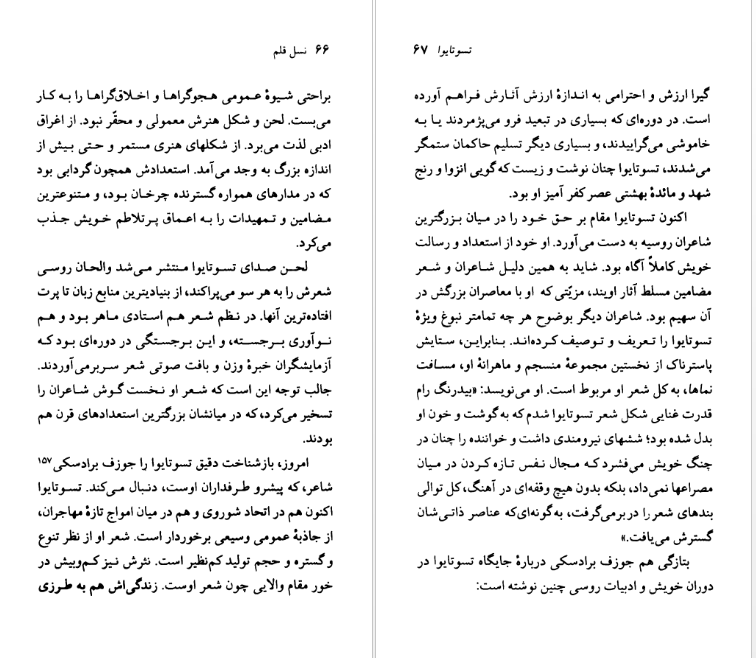 ۶۶ نسل قلم
براحتی شیوهٔ عمومی هجوگراها و اخلاق‌گراها را به کار
می‌بست. لحن و شکل هنرش معمولی و محقّر نبود. از اغراق
ادبی لذت می‌برد. از شکلهای هنری مستمر و حتی بیش از
اندازه بزرگ به وجد می‌آمد. استعدادش همچون گردابی بود
که در مدارهای همواره گسترنده چرخان بود، و متنوعترین
مضامین و تمهیدات را به اعماق پرتلاطم خویش جذب
می‌کرد.
لحن صدای تسوتایوا منتشر می‌شد والحان روسی
شعرش را به هر سو می‌پراکند، از بنیادیترین منابع زبان تا پرت
افتاده‌ترین آنها. در نظم شعر هم استادی ماهر بود و هم
نوآوری برجسته، و این برجستگی در دوره‌ای بود که
آزمایشگران خبرهٔ وزن و بافت صوتی شعر سربرمی‌آوردند.
جالب توجه این است که شعر او نخست گوش شاعران را
تسخیر می‌کرد، که در میانشان بزرگترین استعدادهای قرن هم
بودند.
امروز، بازشناخت دقیق تسوتایوا را جوزف برادسکی۱۵۷
شاعر، که پیشرو طرفداران اوست، دنبال می‌کند. تسوتایوا
اکنون هم در اتحاد شوروی و هم در میان امواج تازهٔ مهاجران،
از جاذبهٔ عمومی وسیعی برخوردار است. شعر او از نظر تنوع
و گستره و حجم تولید کم‌نظیر است. نثرش نیز کم‌وبیش در
خور مقام والایی چون شعر اوست. زندگی‌اش هم به طرزی
تسوتایوا ۶۷
گیرا ارزش و احترامی به اندازهٔ ارزش آثارش فراهم آورده
است. در دوره‌ای که بسیاری در تبعید فرو می‌پژمردند یا به
خاموشی می‌گراییدند، و بسیاری دیگر تسلیم حاکمان ستمگر
می‌شدند، تسوتایوا چنان نوشت و زیست که گویی انزوا و رنج
شهد و مائدهٔ بهشتی عصر کفر آمیز او بود.
اکنون تسوتایوا مقام بر حق خود را در میان بزرگترین
شاعران روسیه به دست می‌آورد. او خود از استعداد و رسالت
خویش کاملاً آگاه بود. شاید به همین دلیل شاعران و شعر
مضامین مسلط آثار اویند، مزیّتی که او با معاصران بزرگش در
آن سهیم بود. شاعران دیگر بوضوح هر چه تمامتر نبوغ ویژهٔ
تسوتایوا را تعریف و توصیف کرده‌اند. بنابراین، ستایش
پاسترناک از نخستین مجموعهٔ منسجم و ماهرانهٔ او، مسافت
نماها، به کل شعر او مربوط است. او می‌نویسد: «بیدرنگ رام
قدرت غنایی شکل شعر تسوتایوا شدم که به گوشت و خون او
بدل شده بود؛ ششهای نیرومندی داشت و خواننده را چنان در
چنگ خویش می‌فشرد که مجال نفس تازه کردن در میان
مصراعها نمی‌داد، بلکه بدون هیچ وقفه‌ای در آهنگ، کل توالی
بندهای شعر را در برمی‌گرفت، به گونه‌ای‌که عناصر ذاتی‌شان
گسترش می‌یافت.»
بتازگی هم جوزف برادسکی دربارهٔ جایگاه تسوتایوا در
دوران خویش و ادبیات روسی چنین نوشته است: